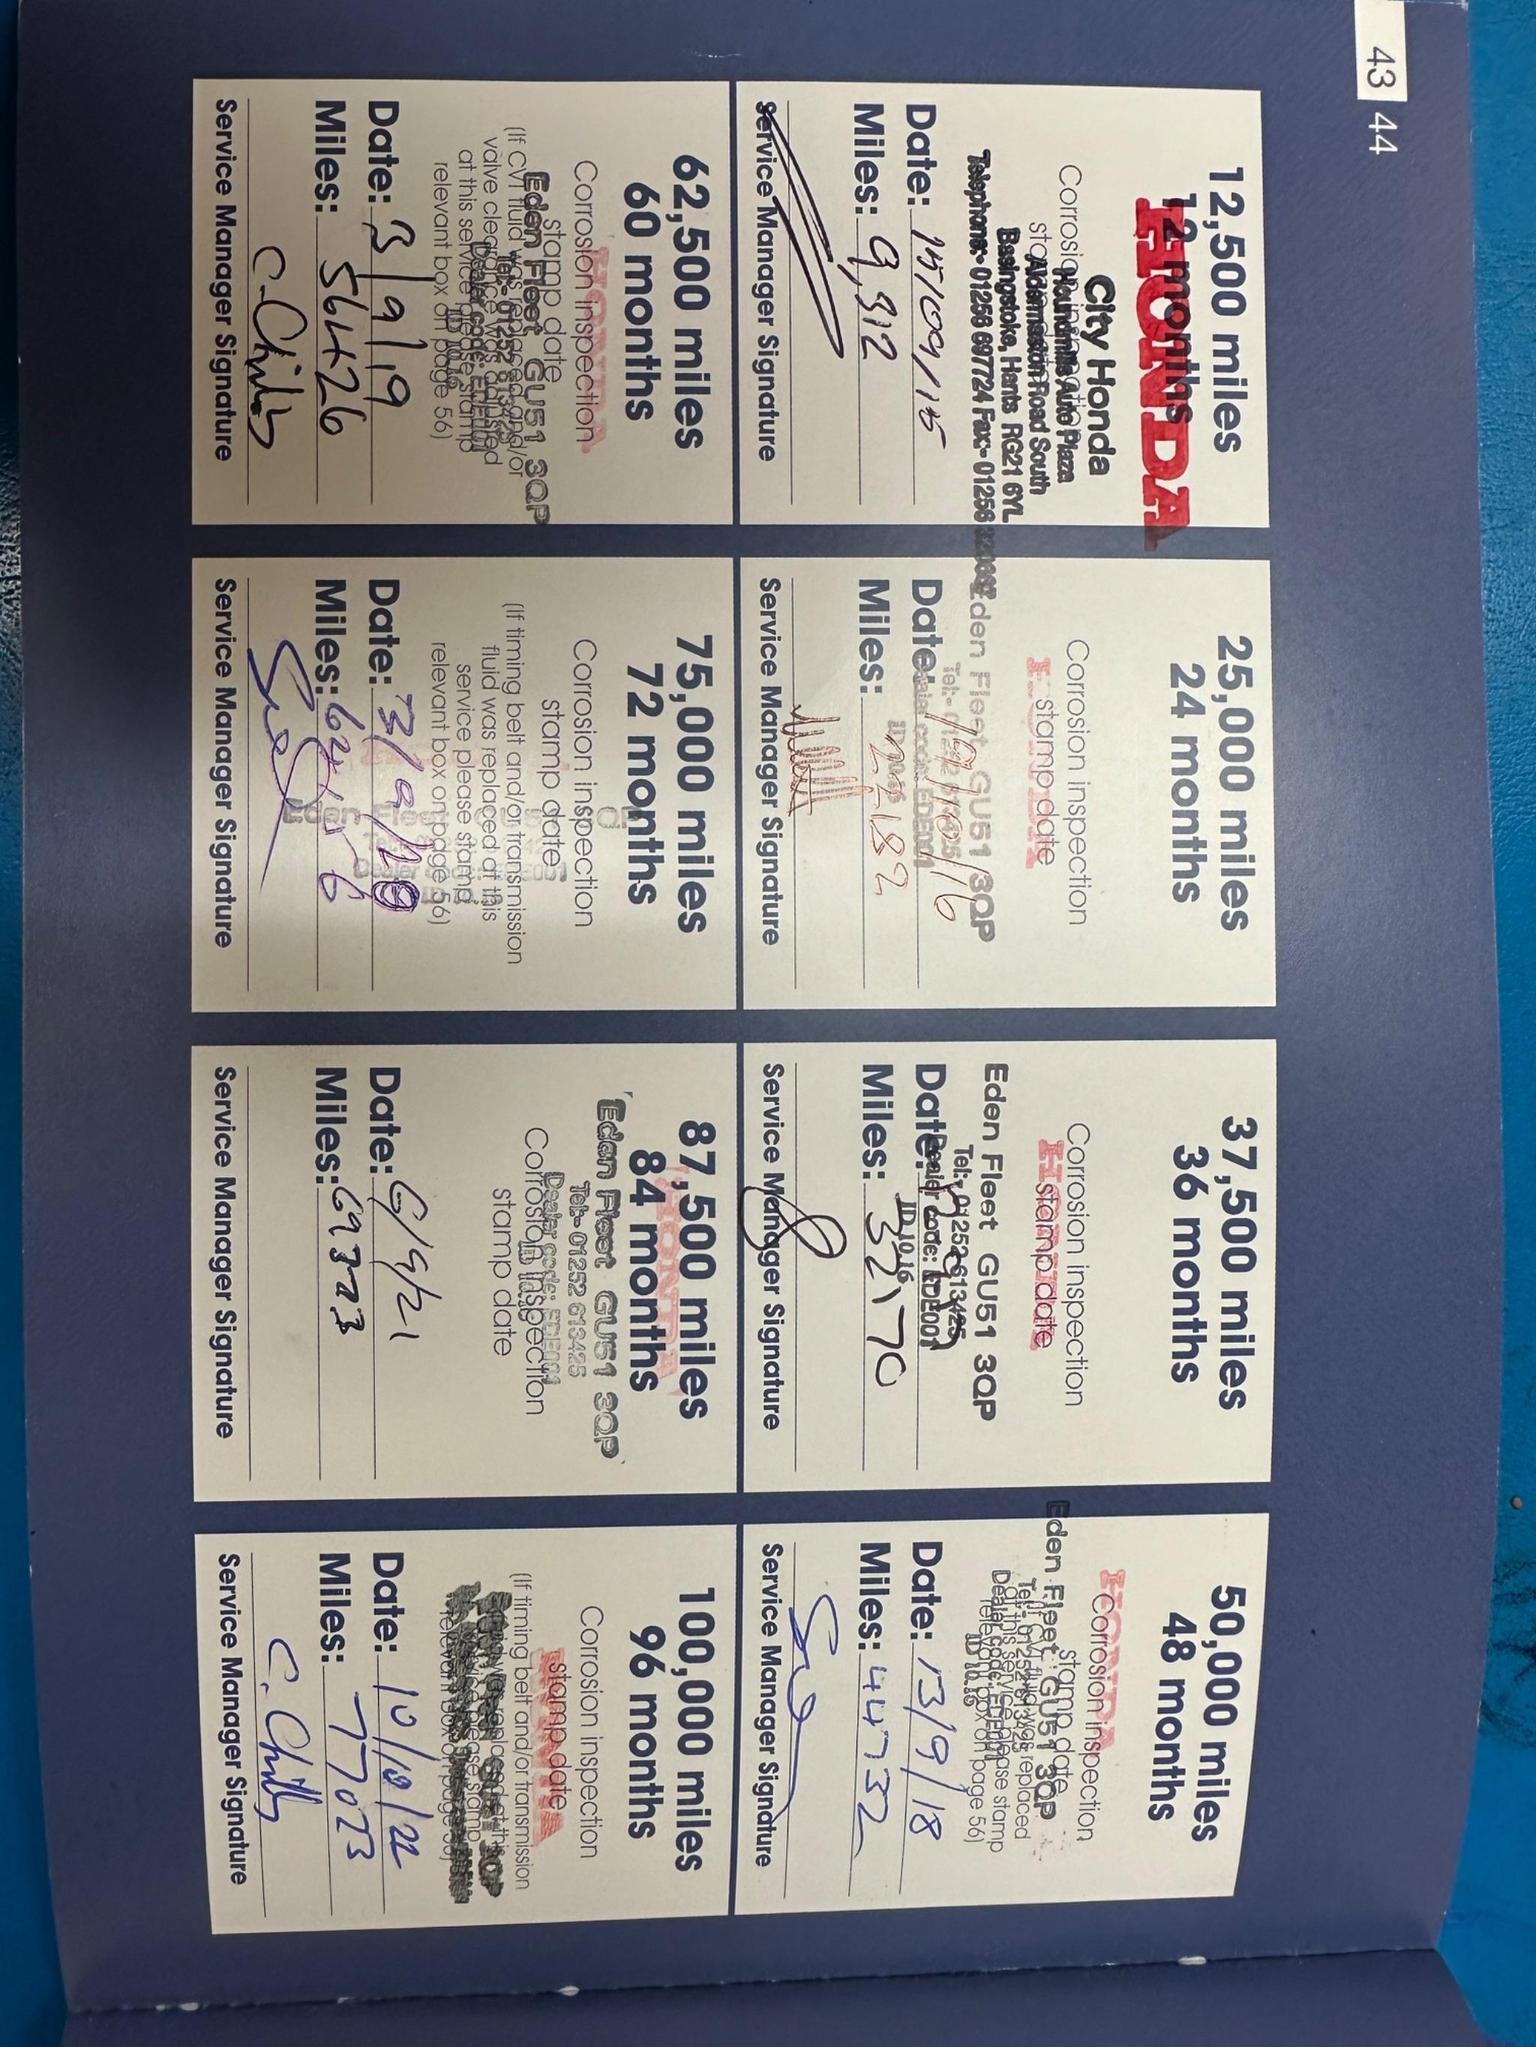 43 44
12,500 miles
12 months
HONDA
City Honda
Corrosion inspection
stamp date
Houndmills Auto Plaza
Aldermaston Road South
Basingstoke, Hants RG21 6YL
Telephone:- 01256 697724 Fax:- 01256
Date: 15/09/15
Miles: 9,312
Service Manager Signature
25,000 miles
24 months
Corrosion inspection
HONDA
stamp date
Eden Fleet GU51 3QP
Tel:- 01252 613425
Dealer code: EDE001
Date: /16
Miles: 22182
Service Manager Signature
37,500 miles
36 months
Corrosion inspection
HONDA
stamp date
Eden Fleet GU51 3QP
Tel:- 01252 613425
Dealer code: EDE001
ID 10.16
Date:
Miles: 32170
Service Manager Signature
50,000 miles
48 months
HONDA
Corrosion inspection
stamp date
Eden Fleet GU51 3QP
Tel:- 01252 613425
replaced
at this service please stamp
Dealer code: EDE001
relevant box on page 56)
ID 10.16
Date: 13/9/18
Miles: 44732
Service Manager Signature
62,500 miles
60 months
HONDA
Corrosion inspection
stamp date
Eden Fleet GU51 3QP
(If CVT fluid was replaced and/or
Tel:- 01252 613425
valve clearance was adjusted
Dealer code: EDE001
at this service please stamp
ID 10.16
relevant box on page 56)
Date: 3/9/19
Miles: 56426
Service Manager Signature
C. Childs
75,000 miles
72 months
Corrosion inspection
stamp date
(If timing belt and/or transmission
fluid was replaced at this
service please stamp
relevant box on page 56)
Eden Fleet
Date: 3/9/20
Miles:
Service Manager Signature
87,500 miles
84 months
HONDA
Eden Fleet GU51 3QP
Tel:- 01252 613425
Dealer code: EDE001
Corrosion inspection
stamp date
Date: 6/9/21
Miles: 69323
Service Manager Signature
100,000 miles
96 months
Corrosion inspection
HONDA
stamp date
(If timing belt and/or transmission
fluid was replaced at this
service please stamp
relevant box on page 56)
Date: 10/10/22
Miles: 77023
Service Manager Signature
C. Childs